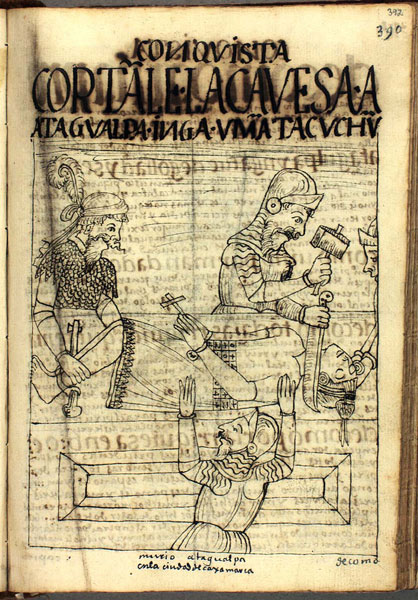 392
390
CONQVISTA
CORTA͠LE·LA CAVESA·A
ATAGVALPA·INGA·VMA͠TA CVCHV͠
murio atagualpa
en la ciudad de caxamarca
de como